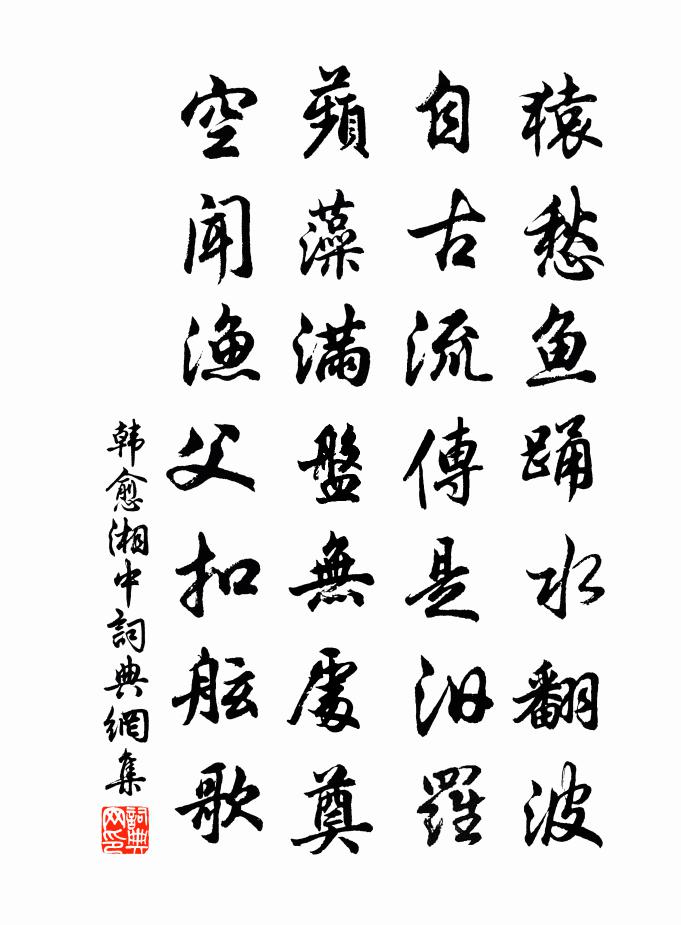 猿愁魚踊水翻波
自古流傳是汨羅
蘋藻滿盤無處奠
空聞漁父扣舷歌
韓愈湘中詞典網集
詞典網印